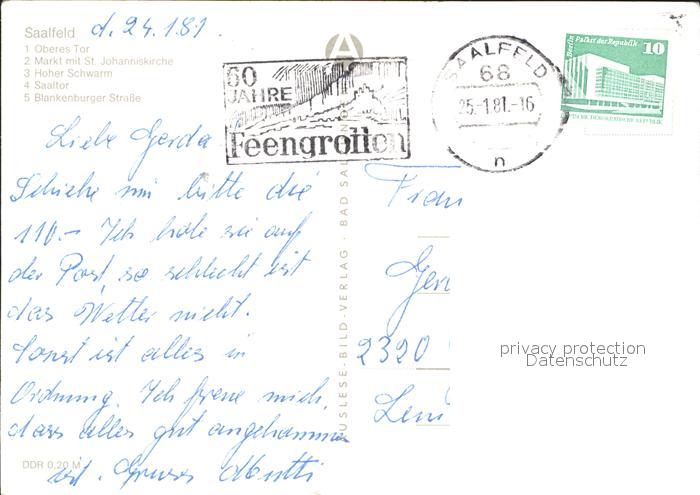 Saalfeld
d. 24.1.81.
1 Oberes Tor
2 Markt mit St. Johanniskirche
3 Hoher Schwarm
4 Saaltor
5 Blankenburger Straße
60
JAHRE
Feengrotten
SAALFELD
68
25.-1.81.-16
n
Berlin Palast der Republik
10
DEUTSCHE DEMOKRATISCHE REPUBLIK
Liebe Gerda
Schicke mir bitte die
110.- Ich hole sie auf
der Post, so schlecht ist
das Wetter nicht.
Sonst ist alles in
Ordnung. Ich freue mich,
dass alles gut angekommen
ist. Gruss Mutti
DDR 0,20 M
AUSLESE-BILD-VERLAG · BAD SAL
Frau
Ger
2320
privacy protection
Datenschutz